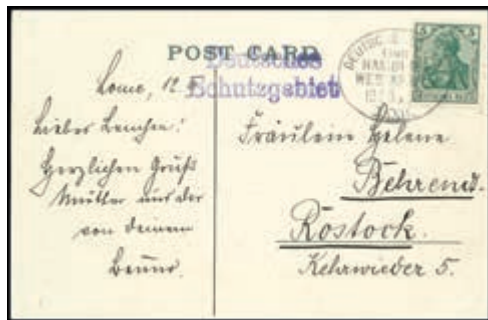 POST CARD
Deutsches
Schutzgebiet
Lome, 12.
Liebes Lenchen!
Herzlichen Gruß
Mutter und
von deinem
Fräulein Helene
Behrend.
Rostock.
Kehrwieder 5.
DEUTSCHE
5